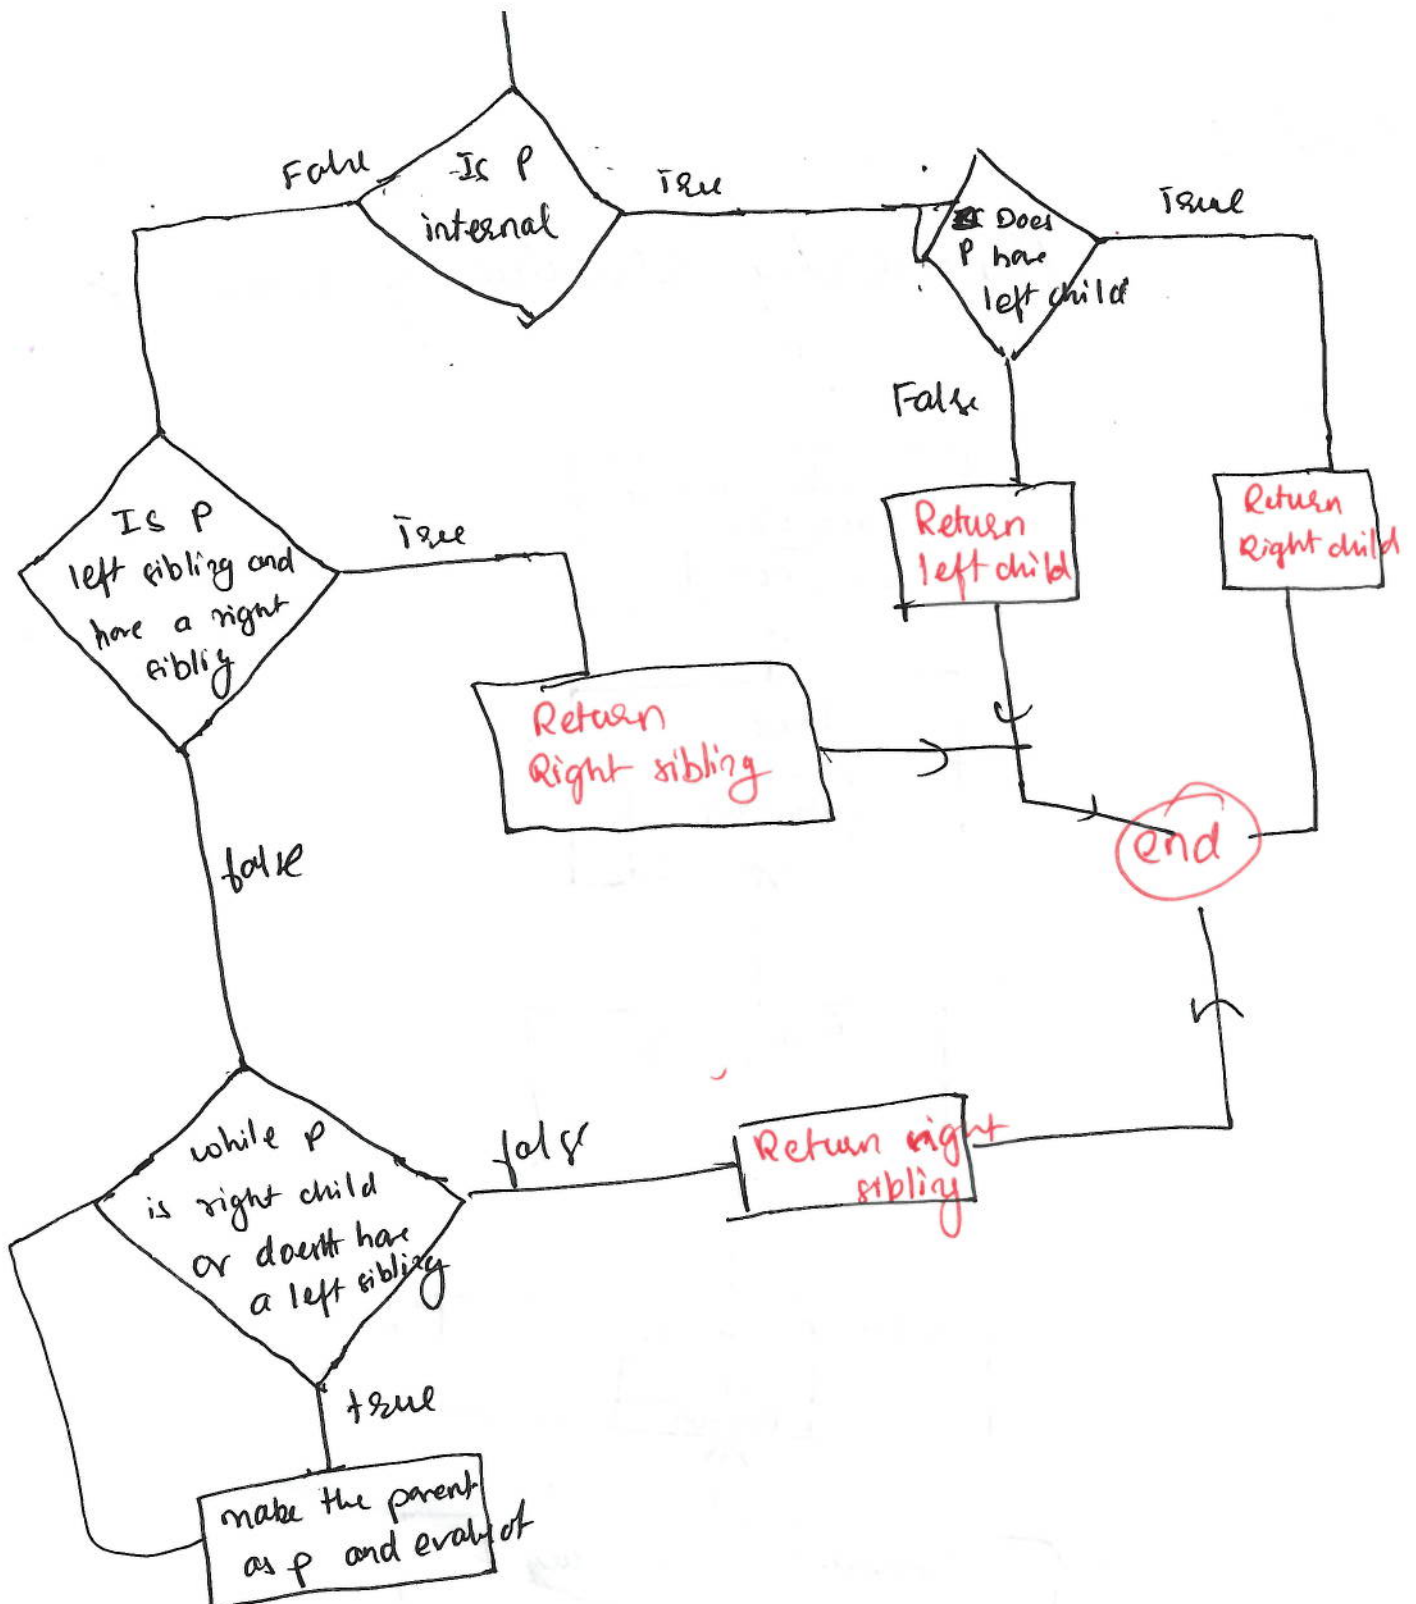 False
Is P
internal
True
Does
P have
left child
True
False
Return
left child
Return
Right child
Is P
left sibling and
have a right
siblig
True
Return
Right sibling
end
false
while P
is right child
or doesnt have
a left sibling
false
Return right
sibling
true
make the parent
as p and